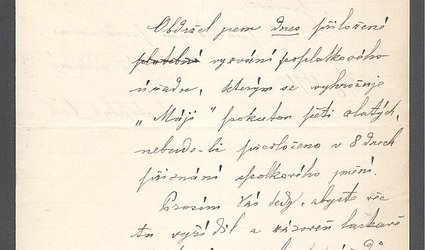 Obdržel jsem dnes přiložené
platební vyzvání poplatkového
úřadu, kterým se vyhrožuje
„Máji" pokutou pěti zlatých,
nebude-li předloženo v 8 dnech
přiznání spolkového jmění.
Prosím Vás tedy, abyste věc
tu vyřídil a zároveň laskavě